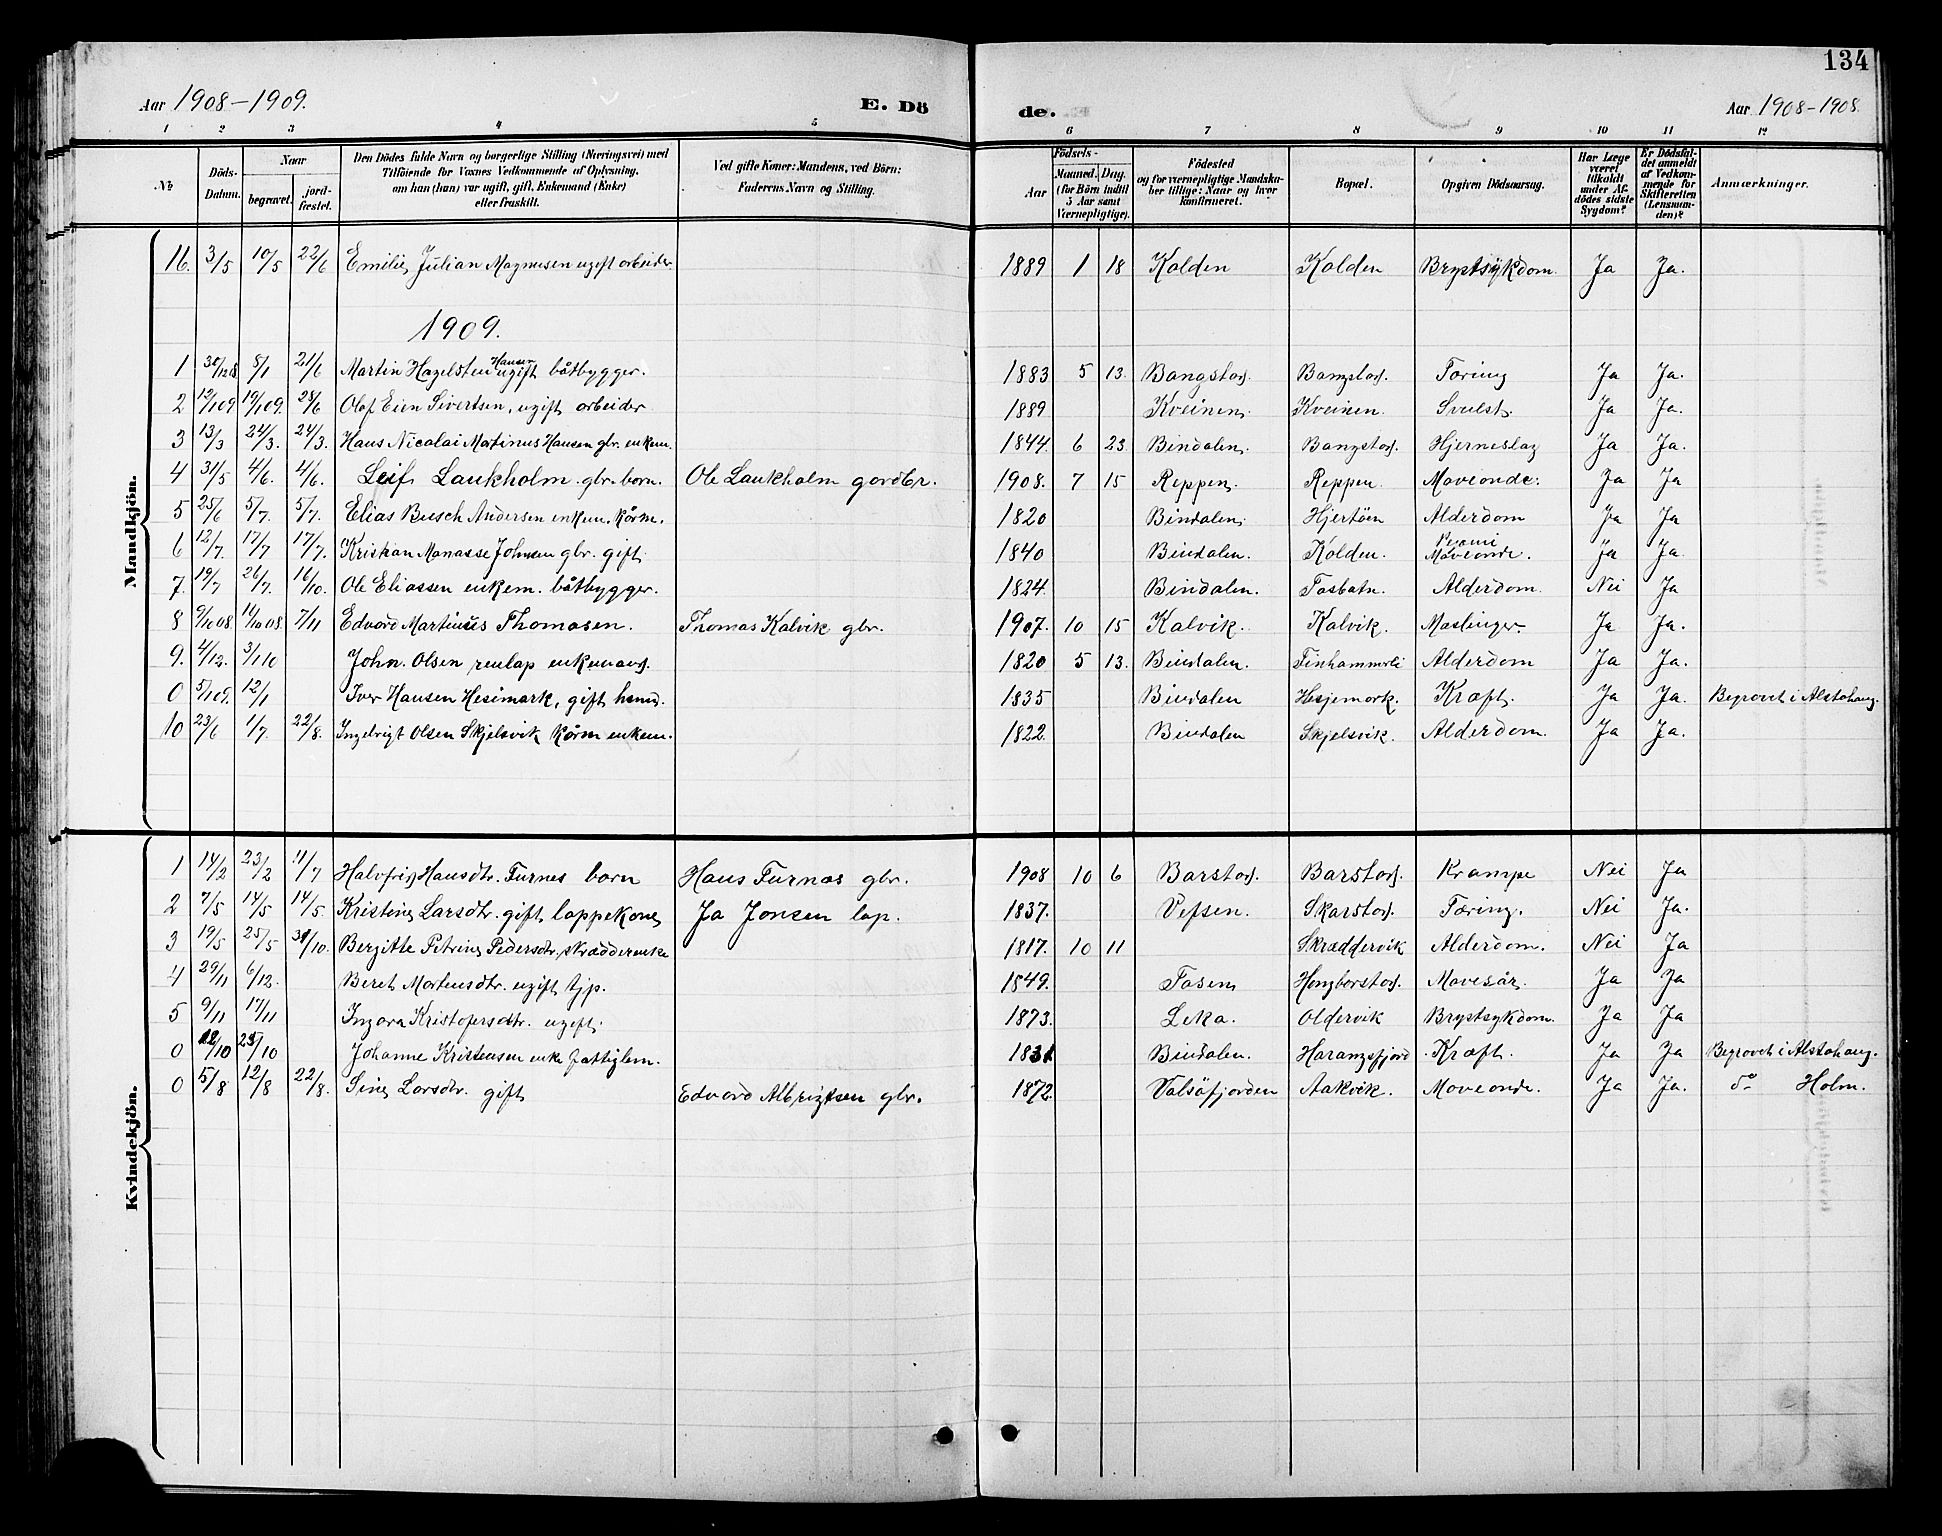 134
Aar 1908-1909. E. Dö de. Aar 1908-1908.
1 2 3 4 5 6 7 8 9 10 11 12
No Döds-Datum. Naar begravet. jordfæstet. Den Dödes fulde Navn og borgerlige Stilling (Næringsvei) med Tilföiende for Voxnes Vedkommende af Oplysning, om han (hun) var ugift, gift, Enkemand (Enke) eller fraskilt. Ved gifte Koner: Mandens, ved Börn: Faderens Navn og Stilling. Födsels- Aar Maaned. Dag. (for Börn indtil 5 Aar samt Værnepligtige). Födested og for værnepligtige Mandskaber tillige: Naar og hvor konfirmeret. Bopæl. Opgiven Dödsaarsag. Har Læge været tilkaldt under Afdödes sidste Sygdom? Er Dödsfaldet anmeldt af Vedkommende for Skifteretten (Lensmanden)? Anmærkninger.
Mandkjön.
16. 3/5 10/5 22/6 Emilie Julian Magnusen ugift arbeider. 1889 1 18 Kolden Kolden Brystsykdom. Ja Ja.
1909.
1 30/12 8 8/1 21/6 Martin Hagelsten Hansen ugift båtbygger. 1883 5 13. Bangstad. Bangstad. Tæring Ja Ja.
2 12/1 09 19/1 09. 28/6 Olaf Eien Sivertsen, ugift arbeider 1889 Kveinen. Kveinen. Svulst. Ja Ja.
3 13/3 24/3. 24/3. Hans Nicolai Martinus Hansen gbr. enkem. 1844 6 23 Bindalen. Bangstad. Hjerneslag Ja Ja.
4 31/5 4/6. 4/6. Leif Laukholm. gbr. barn. Ole Laukholm gardbr. 1908. 7 15 Reppen. Reppen. Maveonde. Ja Ja
5 25/6 5/7. 5/7. Elias Busch Andersen enkem. kårm. 1820 Bindalen. Hjertöen Alderdom Ja Ja
6 12/7. 17/7 17/7. Kristian Manasse Johnsen gbr. gift. 1840 Bindalen. Kolden. Maveonde. Ja Ja.
7. 19/7 26/7. 16/10. Ole Eliassen enkem. båtbygger. 1824. Bindalen. Tosbotn. Alderdom. Nei Ja
8 9/10 08 14/10 08. 7/11 Edvard Martinius Thomasen. Thomas Kalvik gbr. 1907. 10 15 Kalvik. Kalvik. Meslinger. Ja Ja.
9. 4/12. 3/1 10 John. Olsen renlap enkemand. 1820 5 13. Bindalen. Finhammerli Alderdom Ja Ja.
0 5/1 09. 12/1 Iver Hansen Hesimark, gift husm. 1835 Bindalen Hesjemark. Kræft. Ja Ja. Begravet i Alstahaug.
10 23/6 1/7. 22/8. Ingebrigt Olsen Skjelsvik kårm enkem. 1822. Bindalen Skjelsvik. Alderdom. Ja Ja.
Kvindekjön.
1 14/2 23/2 11/7 Halvfrid Hansdtr. Furnes barn Hans Furnes gbr. 1908 10 6 Barstad. Barstad. Krampe Nei Ja
2 7/5 14/5 14/5. Kristine Larsdtr. gift lappekone Ja Jonsen lap. 1837. Vefsen. Skarstad. Tæring. Nei Ja.
3 19/5 25/5 31/10. Bergitte Petrine Pedersdtr. skrædderenke 1817. 10 11 Skræddervik Alderdom. Nei Ja
4 29/11 6/12. Beret Mortensdtr. ugift tjp. 1849. Fosen Hongborstad. Mavesår. Ja Ja
5 9/11 17/11 Ingara Kristofersdtr. ugift. 1873. Leka. Oldervik Brystsykdom. Ja Ja
0 12/10 25/10 Johanne Kristensen enke fattiglem. 1831 Bindalen. Harangsfjord Kræft. Ja Ja Begravet i Alstahaug.
0 5/8 12/8 22/8. Sine Larsdtr. gift Edvard Albrigtsen gbr. 1872. Valsöfjorden Aakvik. Maveonde. Ja Ja. do Holm.